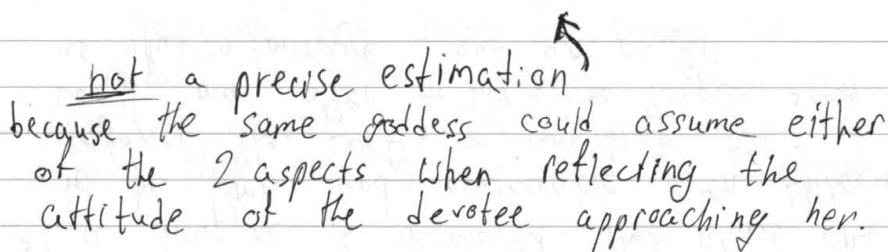 not a precise estimation
because the same goddess could assume either
of the 2 aspects when reflecting the
attitude of the devotee approaching her.